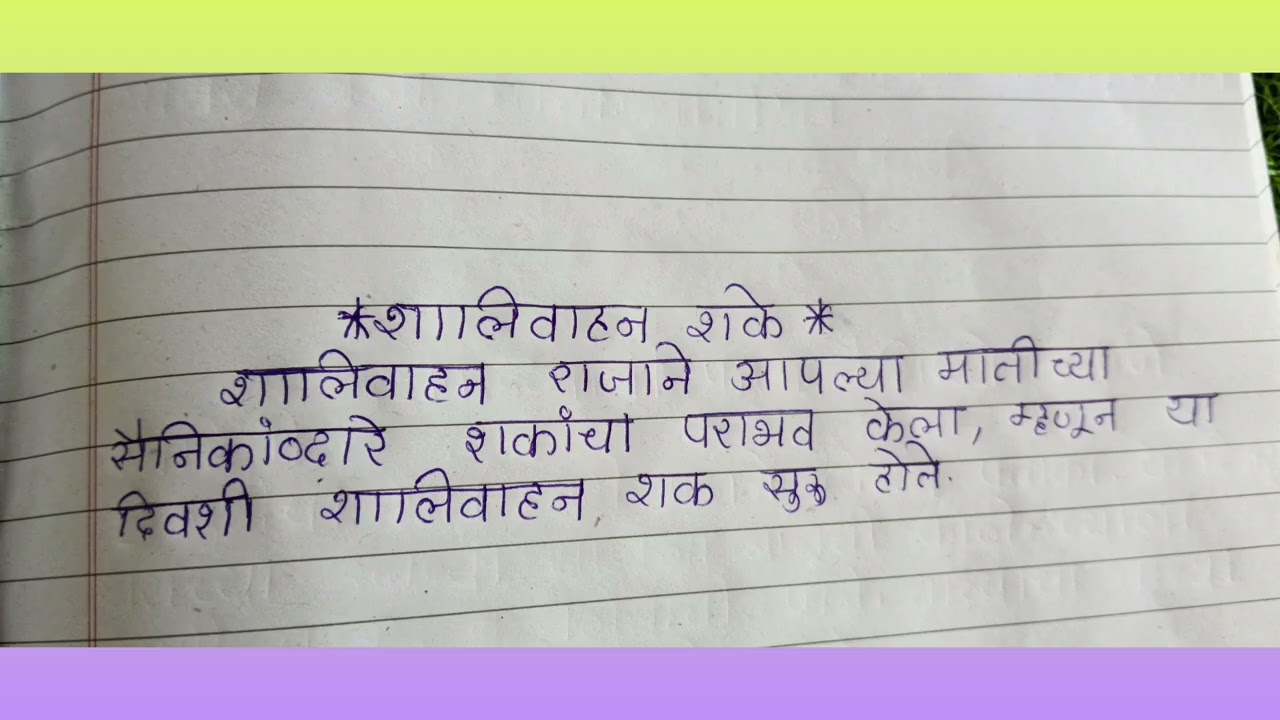 *शालिवाहन शके*
शालिवाहन राजाने आपल्या मातीच्या
सैनिकांव्दारे शकांचा पराभव केला, म्हणून या
दिवशी शालिवाहन शक सुरू होते.